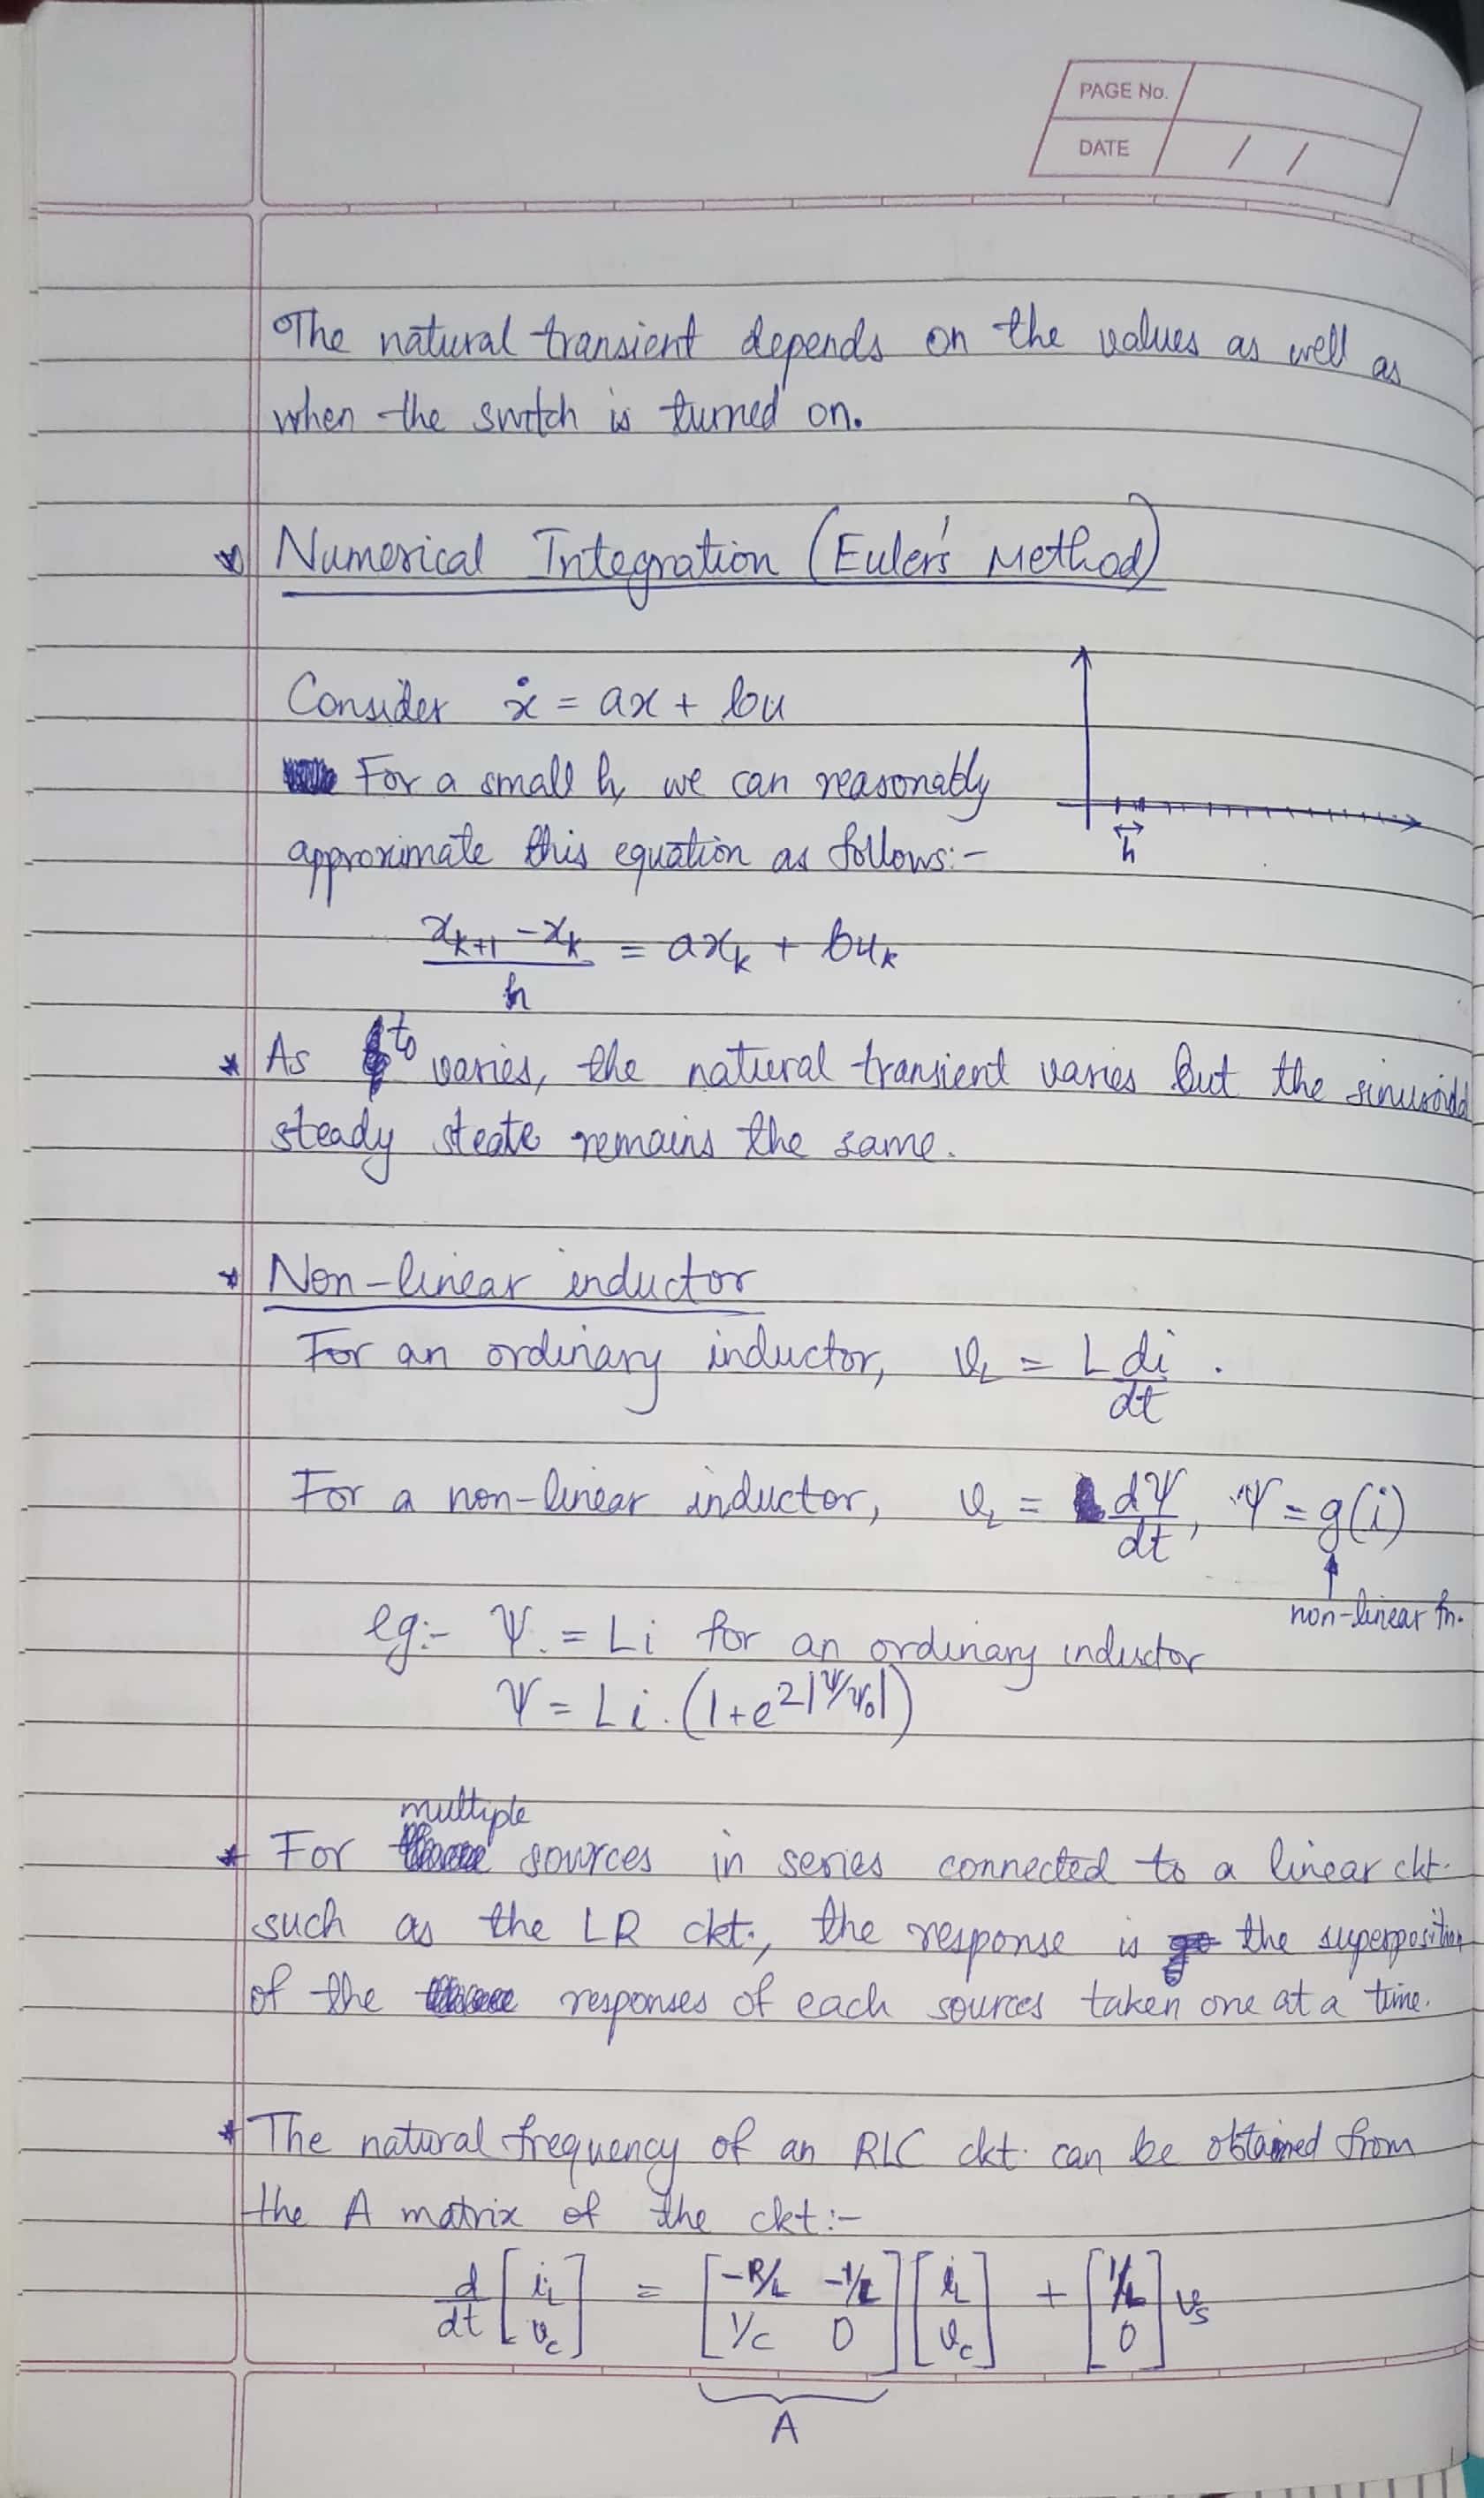 PAGE No.
DATE / /
The natural transient depends on the values as well as
when the switch is turned on.
* Numerical Integration (Euler's Method)
Consider ẋ = ax + bu
For a small h, we can reasonably
approximate this equation as follows:-
h
(x_{k+1} - x_k)/h = ax_k + bu_k
* As t_0 varies, the natural transient varies but the sinusoidal
steady state remains the same.
* Non-linear inductor
For an ordinary inductor, v_L = L di/dt.
For a non-linear inductor, v_L = dΨ/dt, Ψ = g(i)
non-linear fn.
eg:- Ψ = Li for an ordinary inductor
Ψ = Li.(1+e^{2|Ψ/Ψ_0|})
* For multiple sources in series connected to a linear ckt.
such as the LR ckt., the response is the superposition
of the responses of each sources taken one at a time.
* The natural frequency of an RLC ckt. can be obtained from
the A matrix of the ckt:-
d/dt [i_L; v_c] = [-R/L -1/L; 1/C 0] [i_L; v_c] + [1/L; 0] v_s
A